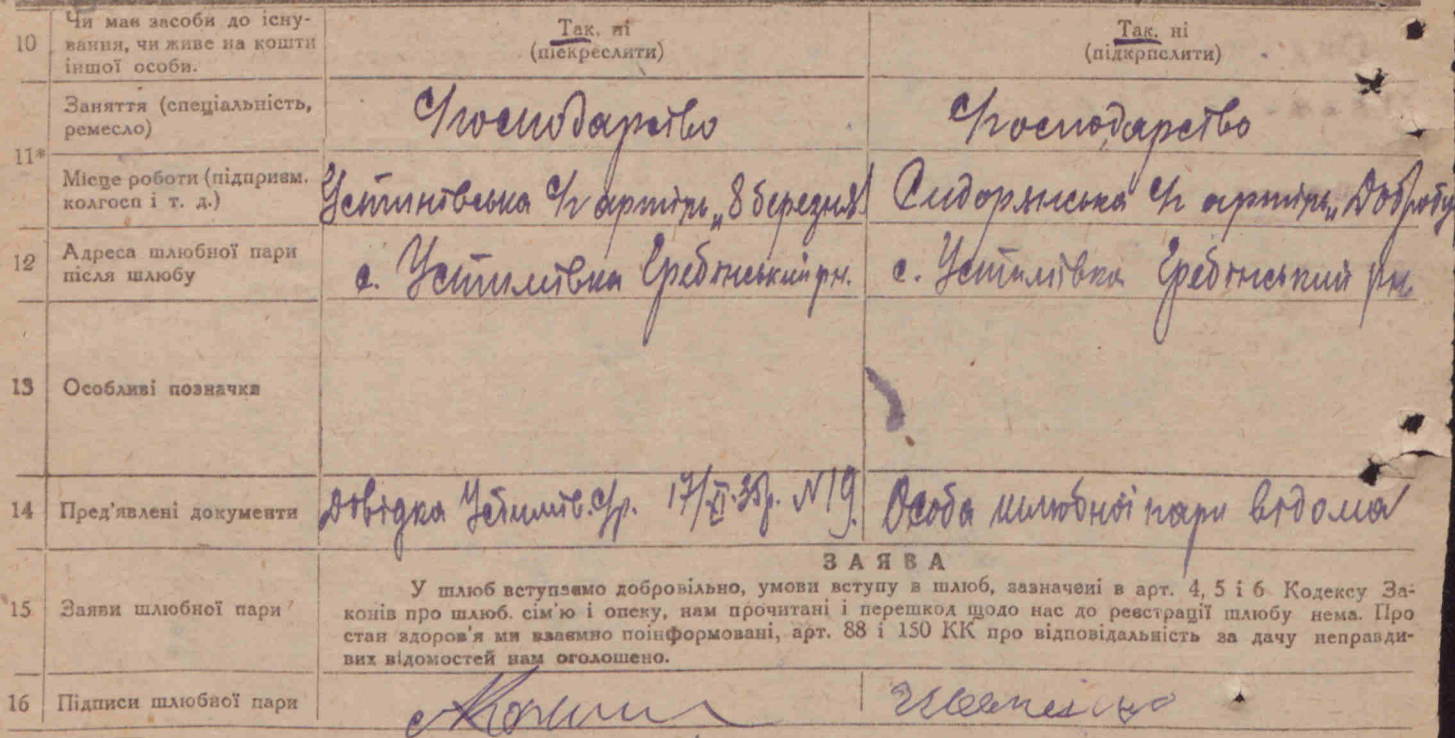 10 Чи має засоби до існу-
вання, чи живе на кошти
іншої особи.
Так, ні
(піекреслити)
Так, ні
(підкрпслити)
11*
Заняття (спеціальність,
ремесло)
С/господарство
С/господарство
Місце роботи (підприєм.
колгосп і т. д.)
С/г артіль „8 березня"
С/г артіль „Добробут
12 Адреса шлюбної пари
після шлюбу
с. Устимівка Гребінський рн.
с. Устимівка Гребінський рн.
13 Особливі позначки
14 Пред'явлені документи
Довідка Устимів. С/р. 17/XI.35р. N19.
Особа шлюбної пари відома
15 Заяви шлюбної пари
ЗАЯВА
У шлюб вступаємо добровільно, умови вступу в шлюб, зазначені в арт. 4, 5 і 6 Кодексу За-
конів про шлюб. сім'ю і опеку, нам прочитані і перешкод щодо нас до реєстрації шлюбу нема. Про
стан здоров'я ми взаємно поінформовані, арт. 88 і 150 КК про відповідальність за дачу неправди-
вих відомостей нам оголошено.
16 Підписи шлюбної пари